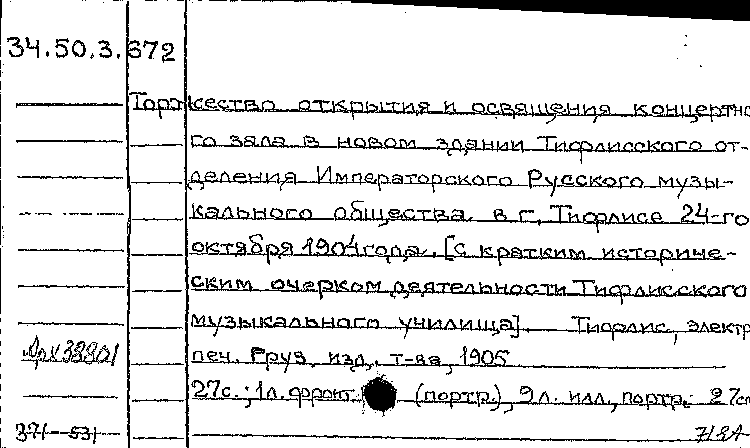 34.50.3.672
Торжество открытия и освящения концертно
го зала в новом здании Тифлисского от-
деления Императорского Русского музы-
кального общества в г. Тифлисе 24-го
октября 1904 года. [с кратким историче-
ским очерком деятельности Тифлисского
музыкального училища]. Тифлис, электр
печ. Груз. изд. т-ва, 1905
27с.; 1л. фронт. (портр.), 9л. илл., портр. 27см